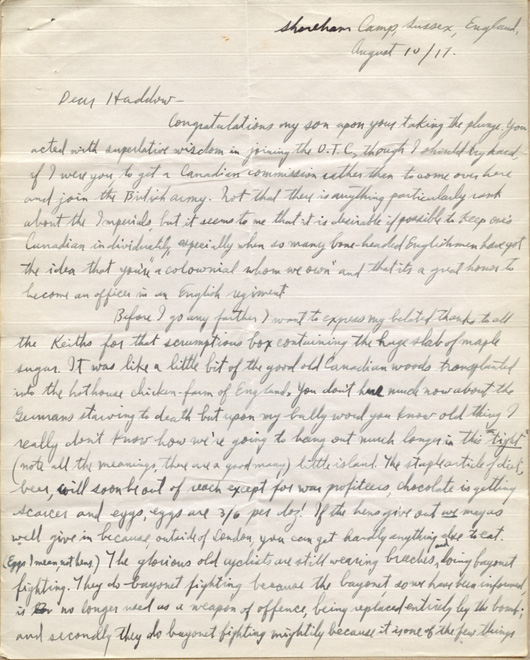 Shoreham Camp, Sussex, England,
August 10/17.
Dear Haddow—
Congratulations my son upon your taking the plunge. You
acted with superlative wisdom in joining the O.T.C., though I should try hard
if I were you to get a Canadian commission rather than to come over here
and join the British army. Not that there is anything particularly rank
about the Imperials, but it seems to me that it is desirable if possible to keep one's
Canadian individuality, especially when so many bone-headed Englishmen have got
the idea that you're "a colownial whom we own" and that it's a great honor to
become an officer in an English regiment
Before I go any farther I want to express my belated thanks to all
the Keiths for that scrumptious box containing the huge slab of maple
sugar. It was like a little bit of the good old Canadian woods transplanted
into the hothouse chicken-farm of England. You don't hear much now about the
Germans starving to death but upon my bully word you know old thing I
really don't know how we're going to hang out much longer in this "tight"
(note all the meanings, there are a good many) little island. The staple article of diet,
beer, will soon be out of reach except for war profiteers, chocolate is getting
scarcer and eggs, eggs are 3/6 per doz! If the hens give out we may as
well give in because, outside of London, you can get hardly anything else to eat.
(Eggs I mean not hens.) The glorious old cyclists are still wearing breeches, and doing bayonet
fighting. They do bayonet fighting because the bayonet so we have been informed,
is no longer used as a weapon of offence, being replaced entirely by the bomb;
and secondly they do bayonet fighting mightily because it is one of the few things